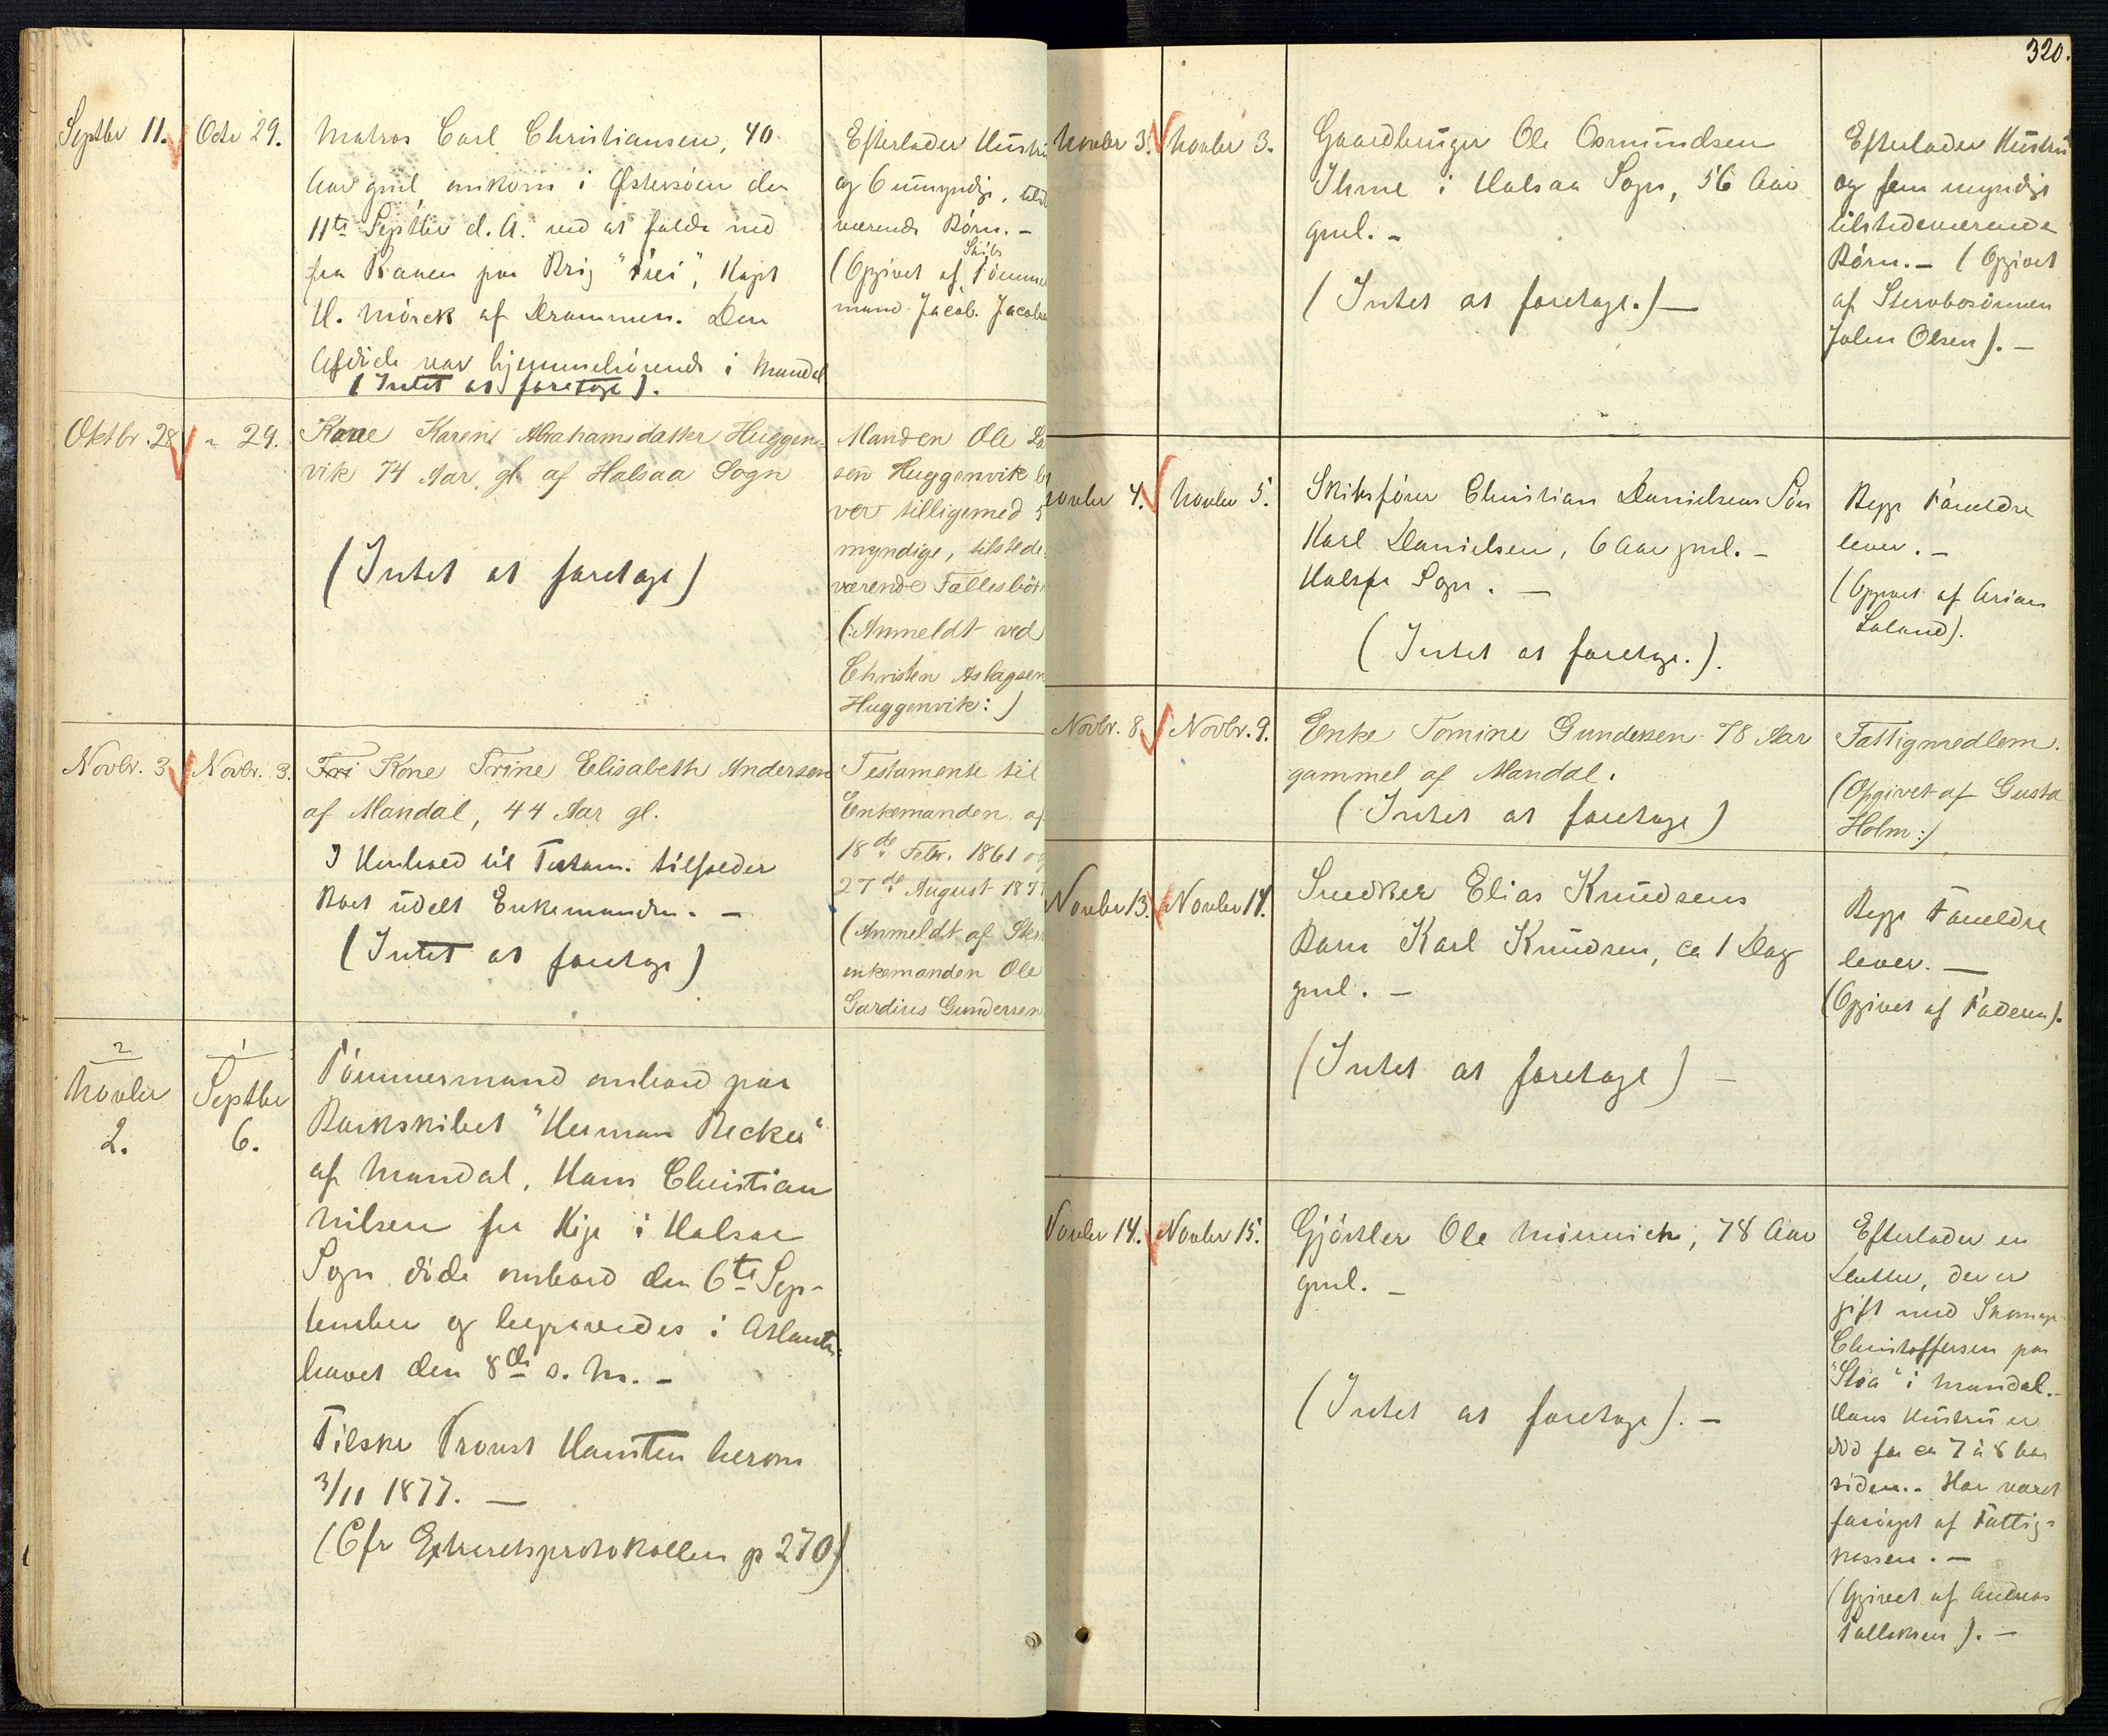 320.
Septbr 11. Octr 29. Matros Carl Christiansen, 40
Aar gml, omkom i Østersöen den
11te Septbr d. A. ved at falde ned
fra Raaen paa Brig "Frei", Kapt
H. Mörck af Drammen. Den
Afdöde var hjemmehörende i Mandal
(Intet at foretage).
Efterlader Hustru
og 6 umyndige,
værende Börn. -
Skibs
(Opgivet af Tömmer
mand Jacob. Jacobsen
Oktbr. 28 " 29. Kone Karen Abrahamsdatter Huggen-
vik 74 Aar gl. af Halsaa Sogn
(Intet at foretage)
Manden Ole La
sen Huggenvik le
ver tilligemed 5
myndige, tilstede
værende Fællesbörn
(: Anmeldt ved
Christen Aslagsen
Huggenvik :)
Novbr. 3 Novbr. 3. Fri Kone Trine Elisabeth Andersen
af Mandal, 44 Aar gl.
I Henhold til Testam. tilfalder
Boet udelt Enkemanden. -
(Intet at foretage)
Testamente til
Enkemanden af
18de Febr. 1861 og
27de August 187
(Anmeldt af Ster
enkemanden Ole
Gardius Gundersen
2 1
Novber Septbr
2. 6.
Tömmermand ombord paa
Barkskibet "Herman Becker"
af Mandal, Hans Christian
Nilsen fra Kige i Halsaa
Sogn döde ombord den 6te Sep-
tember og begravedes i Atlanter-
havet den 8de s. M. -
Tilskr Provst Hansteen herom
3/11 1877. -
(Cfr Extraretsprotokollen p 270)
Novbr 3. Novbr 3. Gaardbruger Ole Osmundsen
Ihme i Halsaa Sogn, 56 Aar
gml. -
(Intet at foretage.) -
Efterlader Hustru
og fem myndige
tilstedeværende
Börn. - (Opgivet
af Stervbosönnen
Johan Olsen). -
Novbr 4. Novbr 5. Skibsförer Christian Danielsens Sön
Karl Danielsen, 6 Aar gml. -
Halsaa Sogn. -
(Intet at foretage.).
Begge Foreldre
lever. -
(Opgivet af Arian
Laland).
Novbr. 8 Novbr. 9. Enke Tomine Gundersen 78 Aar
gammel af Mandal.
(Intet at foretage)
Fattigmedlem.
(Opgivet af Gusta
Holm :)
Novbr 13. Novbr 14. Snedker Elias Knudsens
Barn Karl Knudsen, ca 1 Dag
gml. -
(Intet at foretage) -
Begge Foreldre
lever. -
(Opgivet af Faderen).
Novbr 14. Novbr 15. Gjörtler Ole Münnich, 78 Aar
gml. -
(Intet at foretage). -
Efterlader en
Datter, der er
gift med Skomager
Christoffersen paa
"Støa" i Mandal. -
Hans Hustru er
död for ca 7 à 8 Aar
siden. - Har været
forsörget af Fattig-
kassen. -
(Opgivet af Andreas
Tallaksen). -